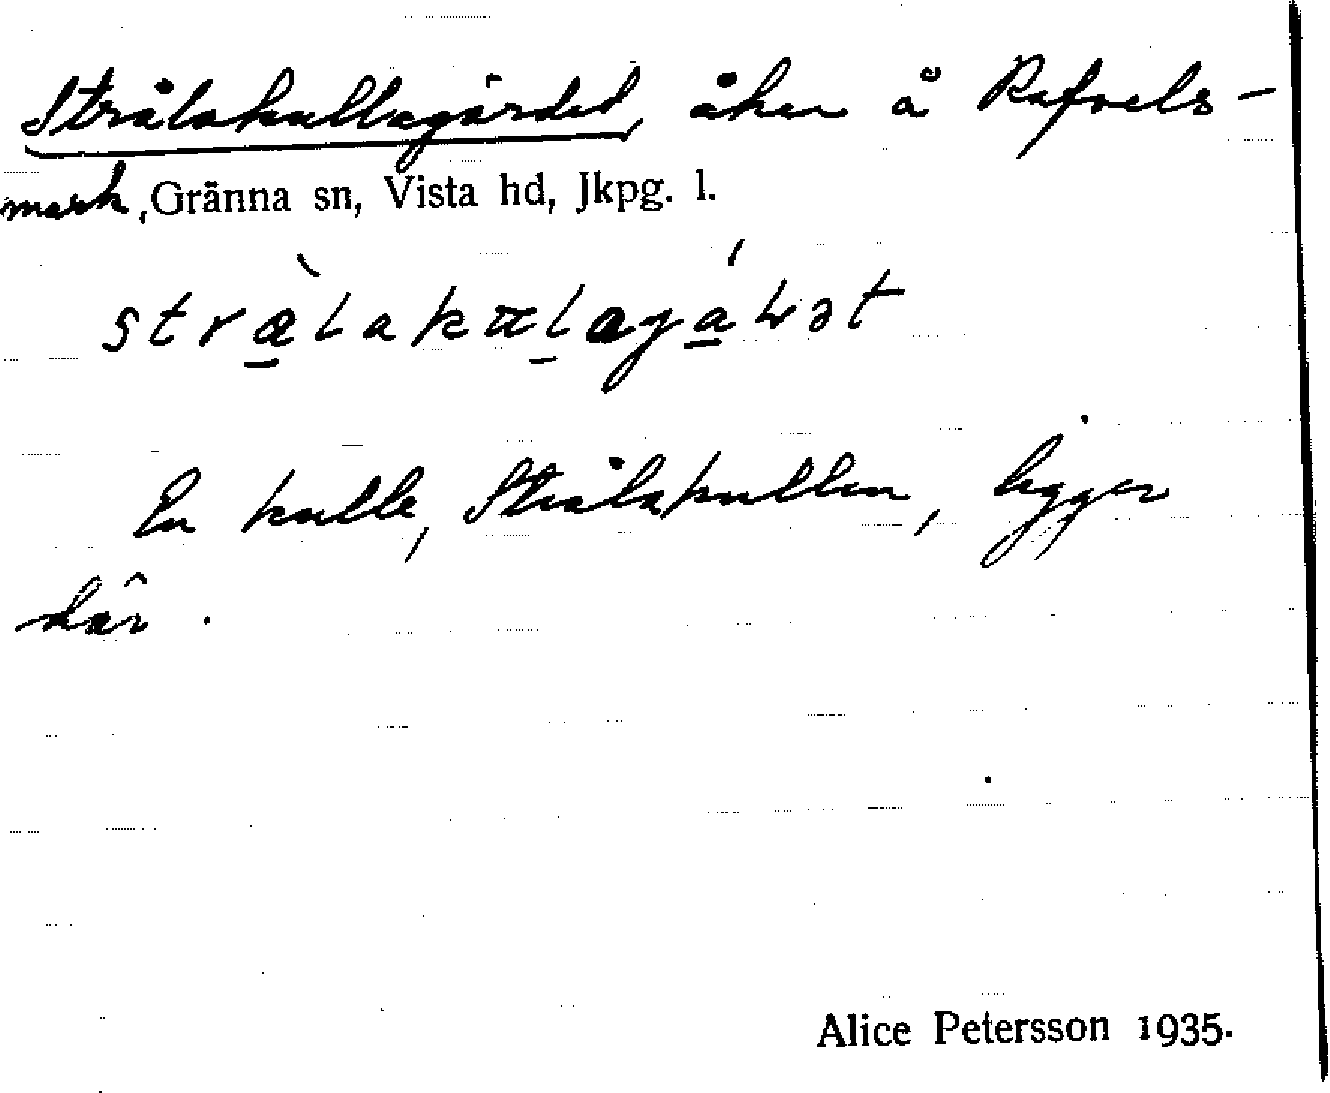 Strålakullagärdet, åker å Rafvels-
mark, Gränna sn, Vista hd, Jkpg. l.
En kulle, Strålakullen, ligger
där.
Alice Petersson 1935.